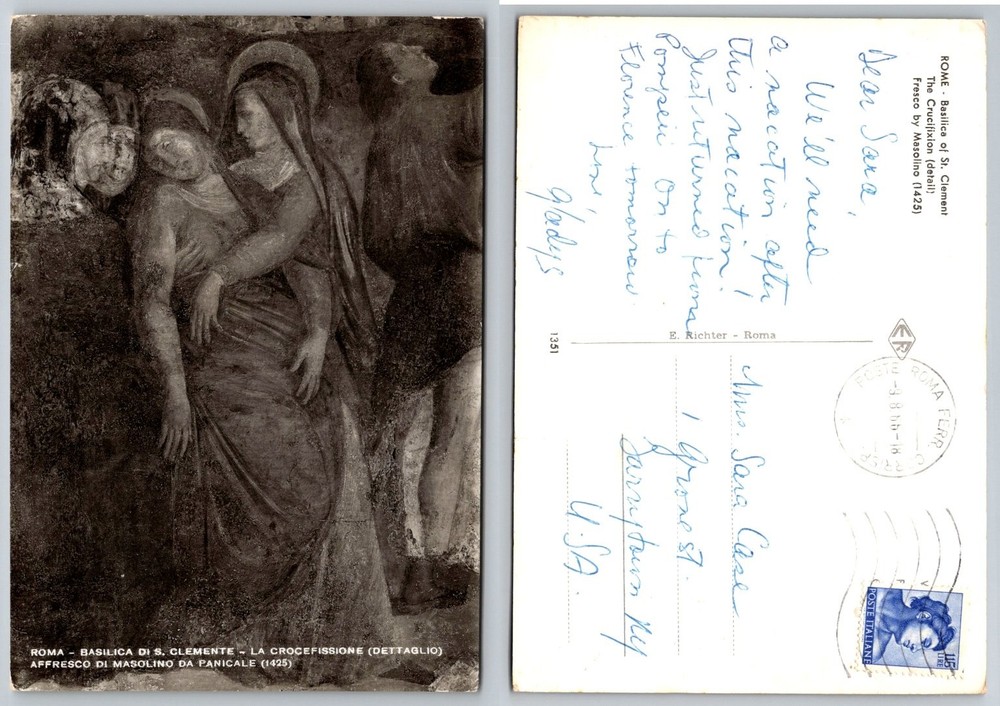 ROMA - BASILICA DI S. CLEMENTE - LA CROCEFISSIONE (DETTAGLIO)
AFFRESCO DI MASOLINO DA PANICALE (1425)
ROME - Basilica of St. Clement
The Crucifixion (detail)
Fresco by Masolino (1425)
Dear Sara,
We'll need
a vacation after
this vacation!
Just returned from
Pompeii On to
Florence tomorrow
Love,
Gladys
1351
E. Richter - Roma
ER
POSTE ROMA FERR.
POSTE ITALIANE
115
LIRE
Mrs. Sara Case
1 Grove St.
Tarrytown NY
U.S.A.